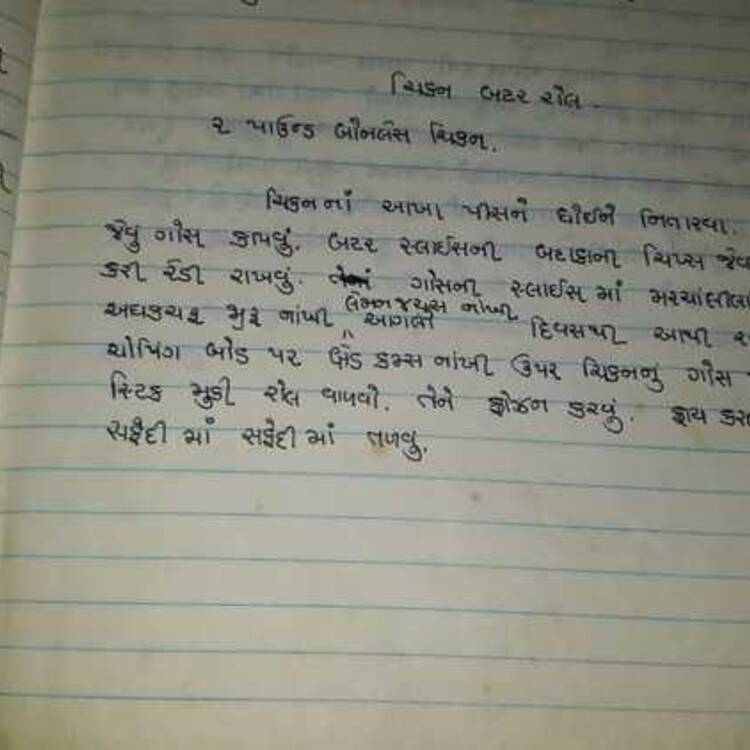 ચિકન બટર રોલ.
૨ પાઉન્ડ બોનલેસ ચિકન.
ચિકનનાં આખા પીસને ધોઈને નિતારવા.
જેવું ગોસ કાપવું. બટર સ્લાઈસની બટાકાની ચિપ્સ જેવ
કરી રેડી રાખવું. ગોસની સ્લાઈસ માં મરચાંલીલા
લેમન જ્યુસ નાંખી
અધકચરૂ મુરૂ નાંખી આગલી દિવસથી આપી
ચોપિંગ બોર્ડ પર બ્રેડ ક્રમ્સ નાંખી ઉપર ચિકનનું ગોસ
સ્ટિક મુકી રોલ વાળવો. તેને ફ્રોઝન કરવું. ફ્રાય કર
સફેદી માં સફેદી માં તળવું.